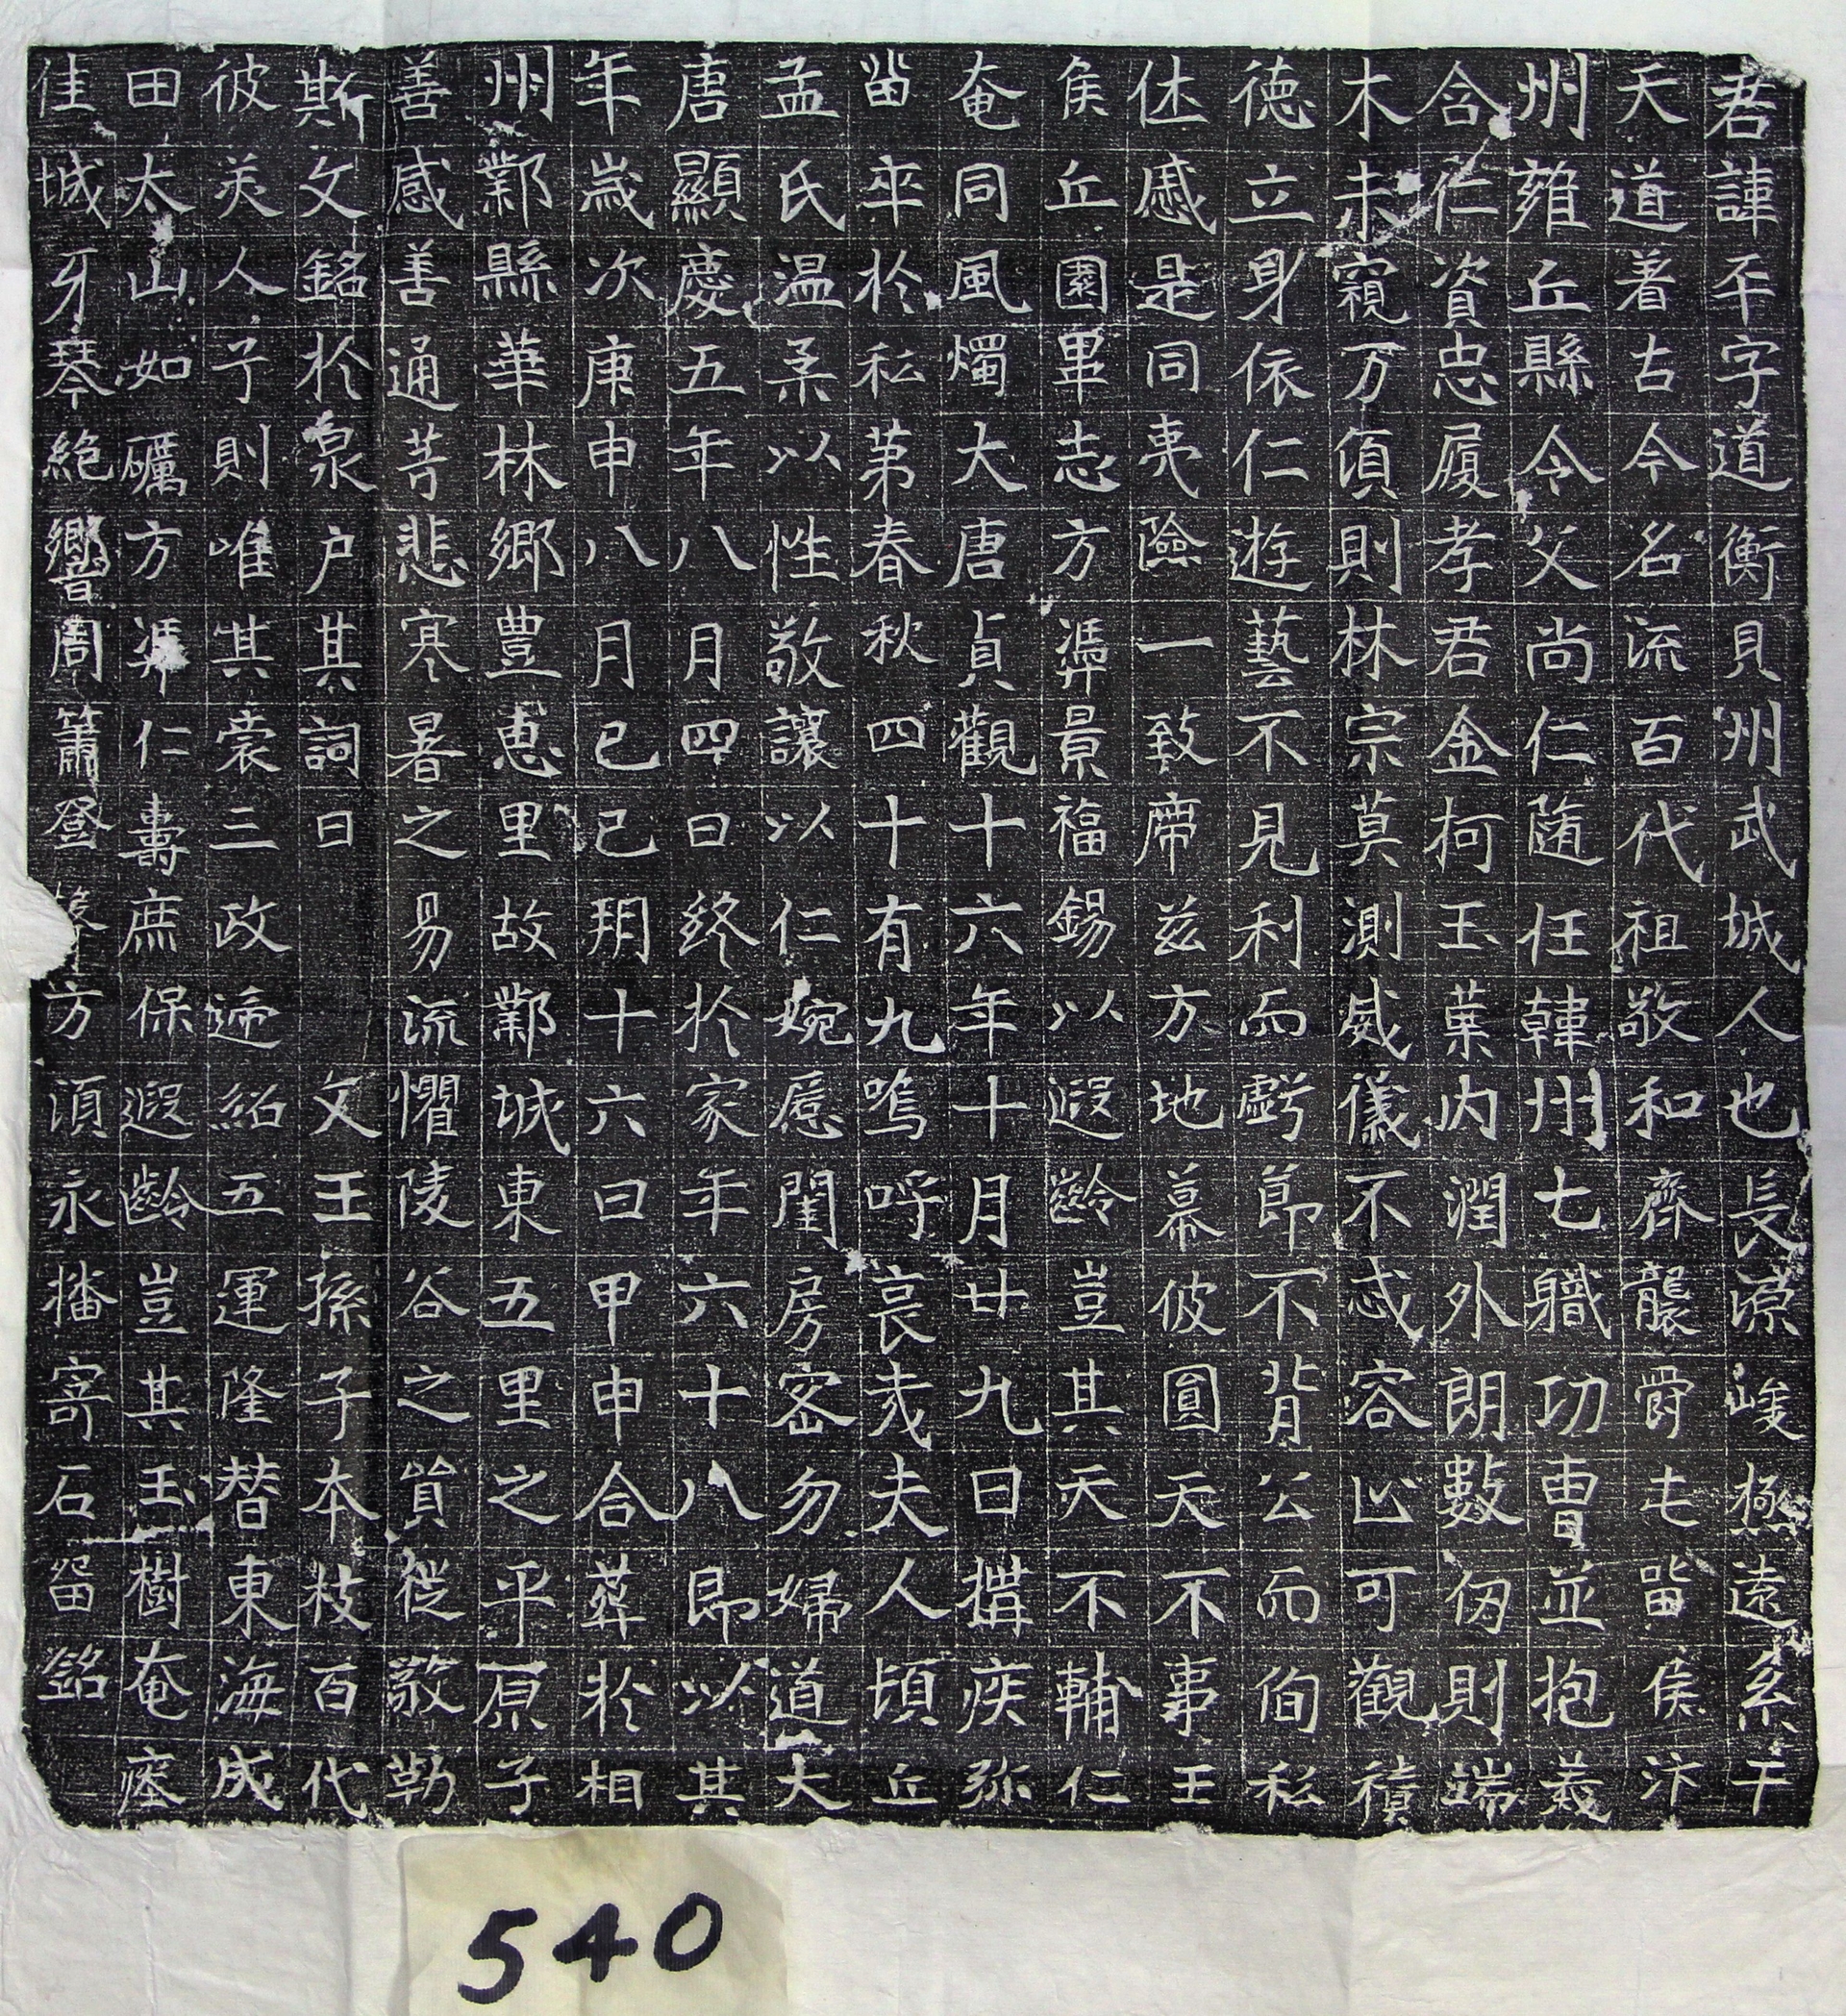 君諱平字道衡貝州武城人也長源峻極遠系干
天道着古今名流百代祖敬和齊襲爵屯留侯汴
州雍丘縣令父尚仁隨任韓州七職功曹並抱義
含仁資忠履孝君金柯玉葉内潤外朗數仭則端
木未窺万頃則林宗莫測威儀不忒容止可觀積
德立身依仁遊藝不見利而虧節不背公而佝私
休慼是同夷險一致席兹方地幕彼圓天不事王
侯丘園畢志方湯景福錫以遐齡豈其天不輔仁
奄同風燭大唐貞觀十六年十月廿九日搆疾弥
留卒於私苐春秋四十有九嗚呼哀哉夫人頓丘
孟氏温柔以性敬讓以仁婉慝閨房密勿婦道大
唐顯慶五年八月四日終於家年六十八即以其
年歲次庚申八月己巳朔十六日甲申合葬於相
州鄴縣華林鄉豊惠里故鄴城東五里之平原子
善感善通等悲寒暑之易流懼陵谷之貿從敬勒
斯文銘於泉户其詞曰　文王孫子本枝百代
彼美人子則唯其裳三政遞紹五運隆替東海成
田太山如礪方憑仁壽庶保遐齡豈其玉樹奄瘞
佳城牙琴絶響周簫登 方湏永播寄石留銘
540